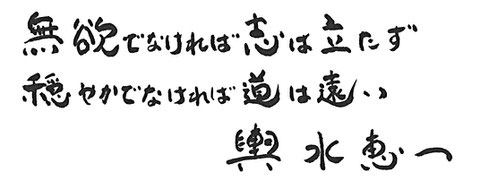 無欲でなければ志は立たず
穏やかでなければ道は遠い
輿水恵一